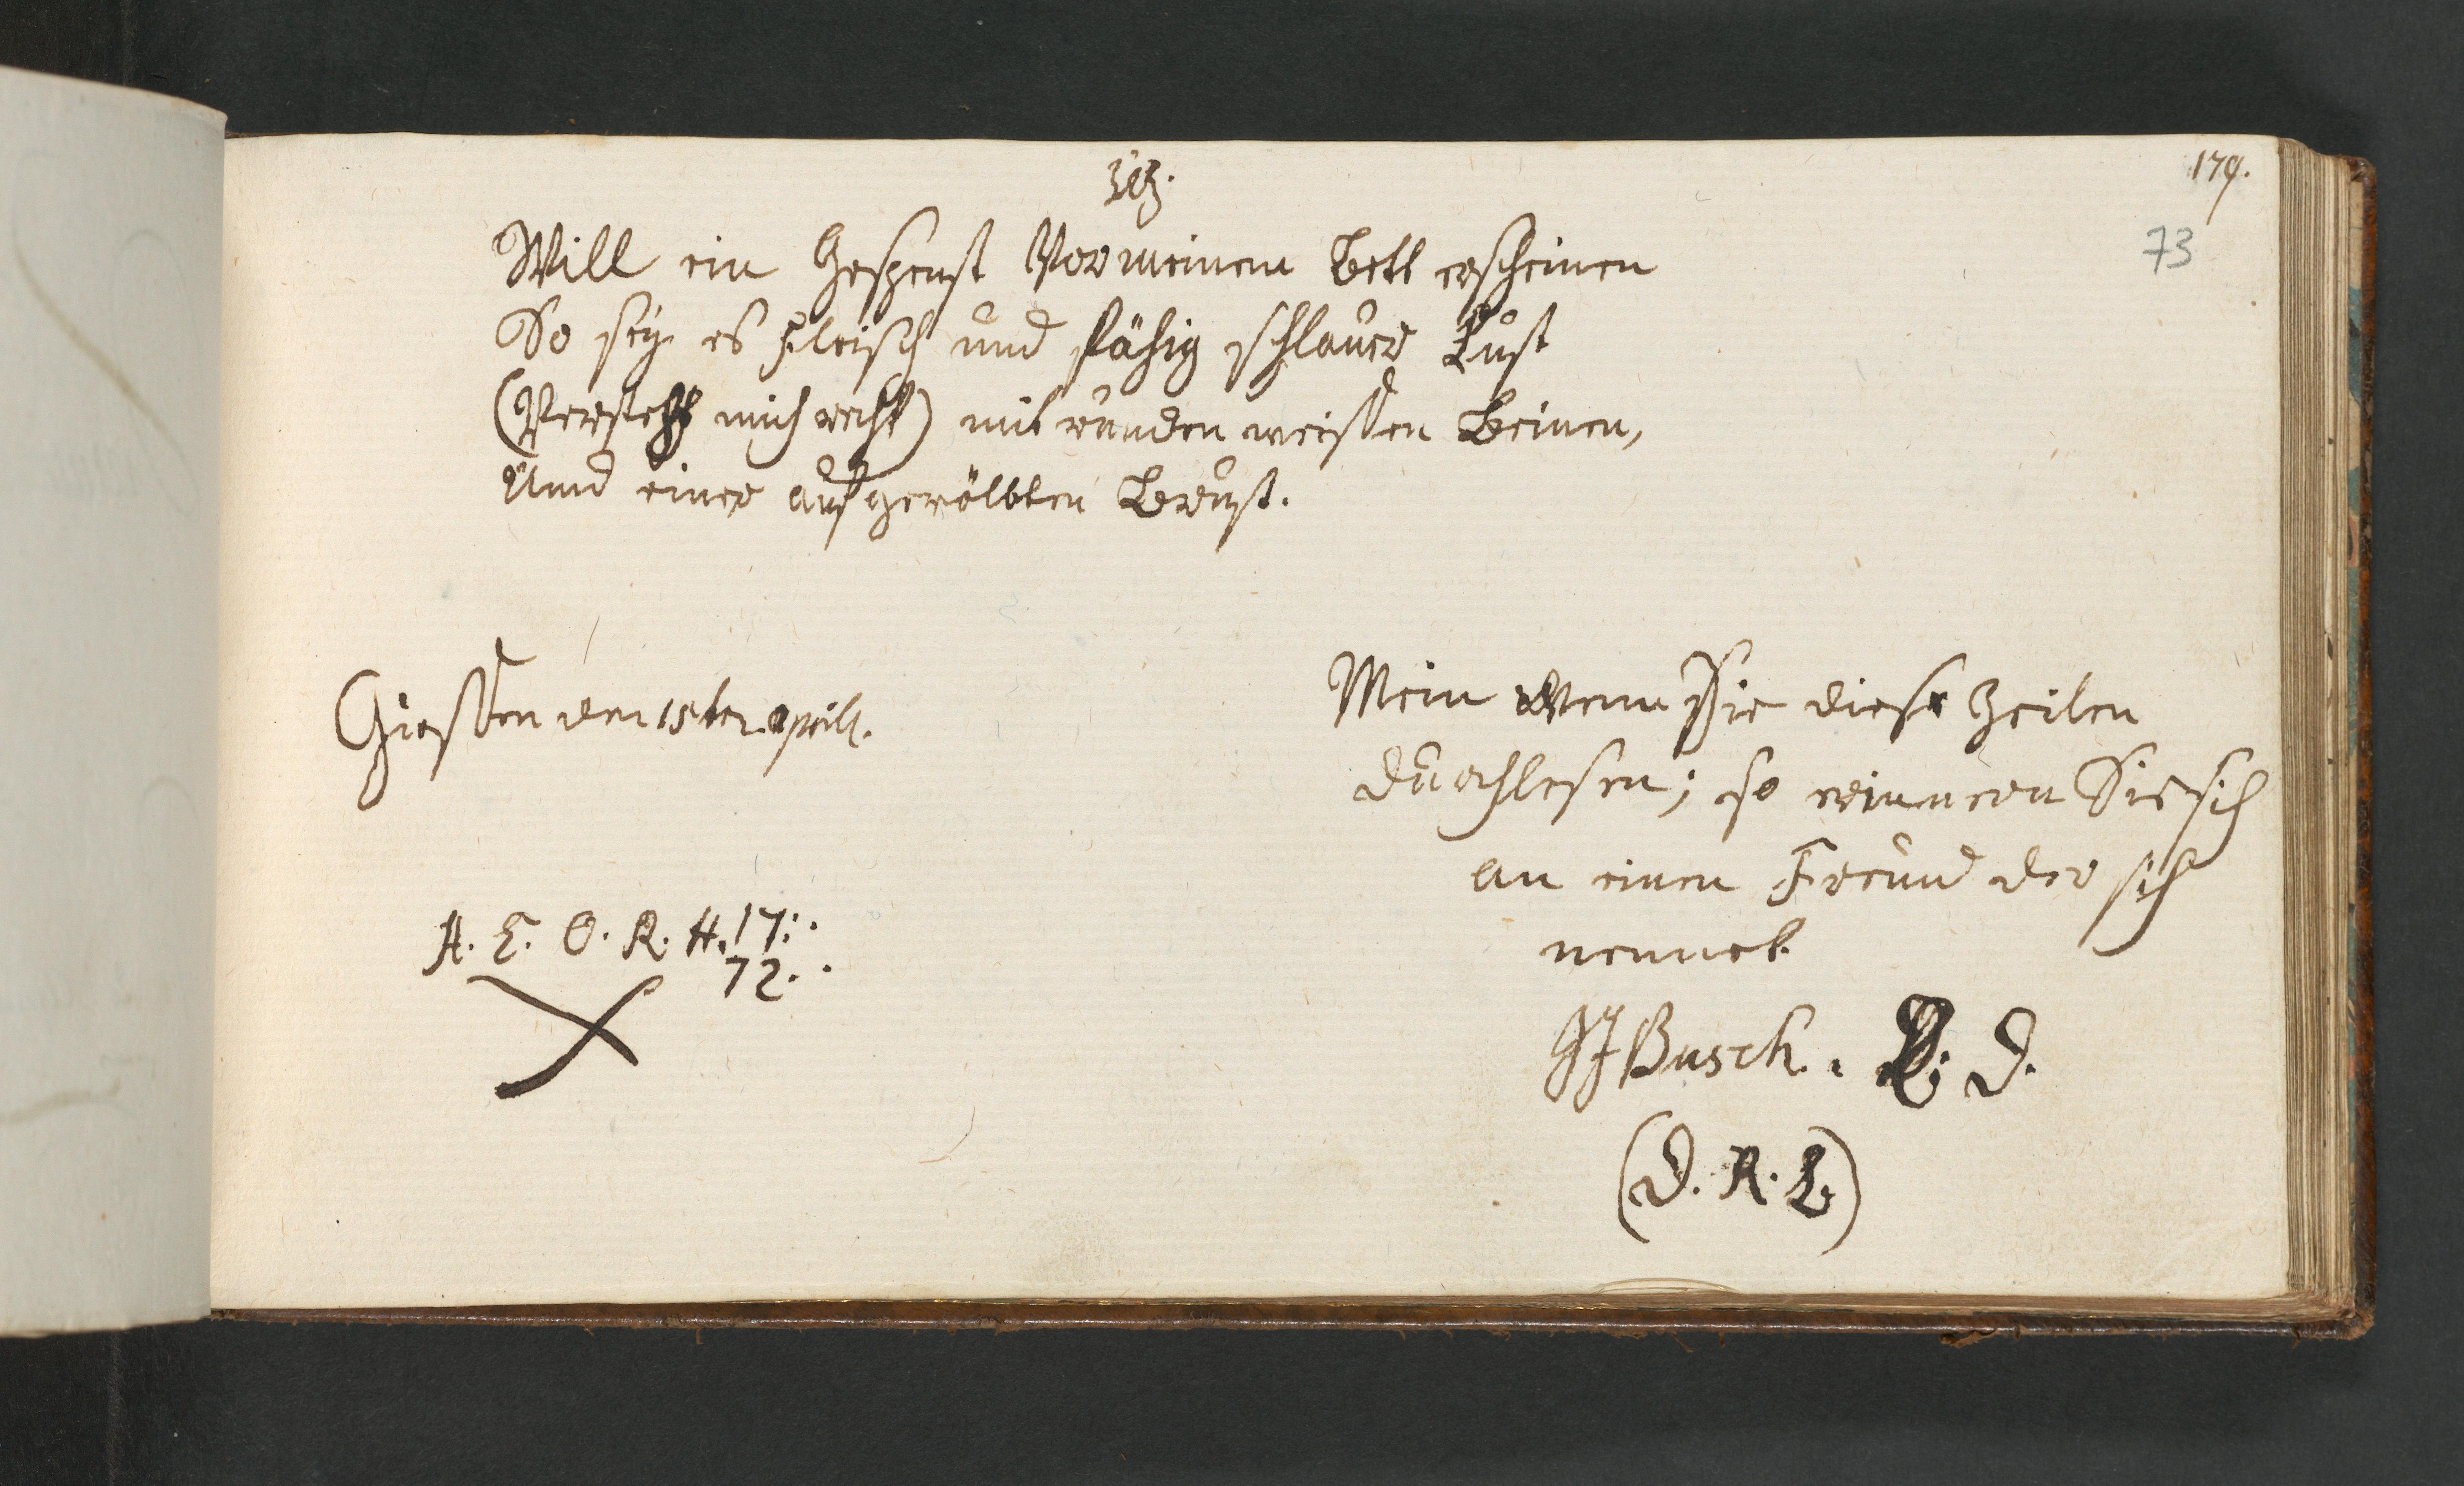 179.
73
Will ein Gespenst Vor meinem Bett erscheinen
So sey es Fleisch und fähig schlauer Lust
(Versteht mich recht) mit runden weissen Beinen,
Und einer aufgewölbten Brust.
Giessen den 15ten april.
Mein Wenn Sie diese Zeilen
durchlesen; so erinnern Sie sich
an einen Freund der sich
nennet
A. E. O. R. H. 17:.
72..
GJBusch. D.
(D. R. L.)